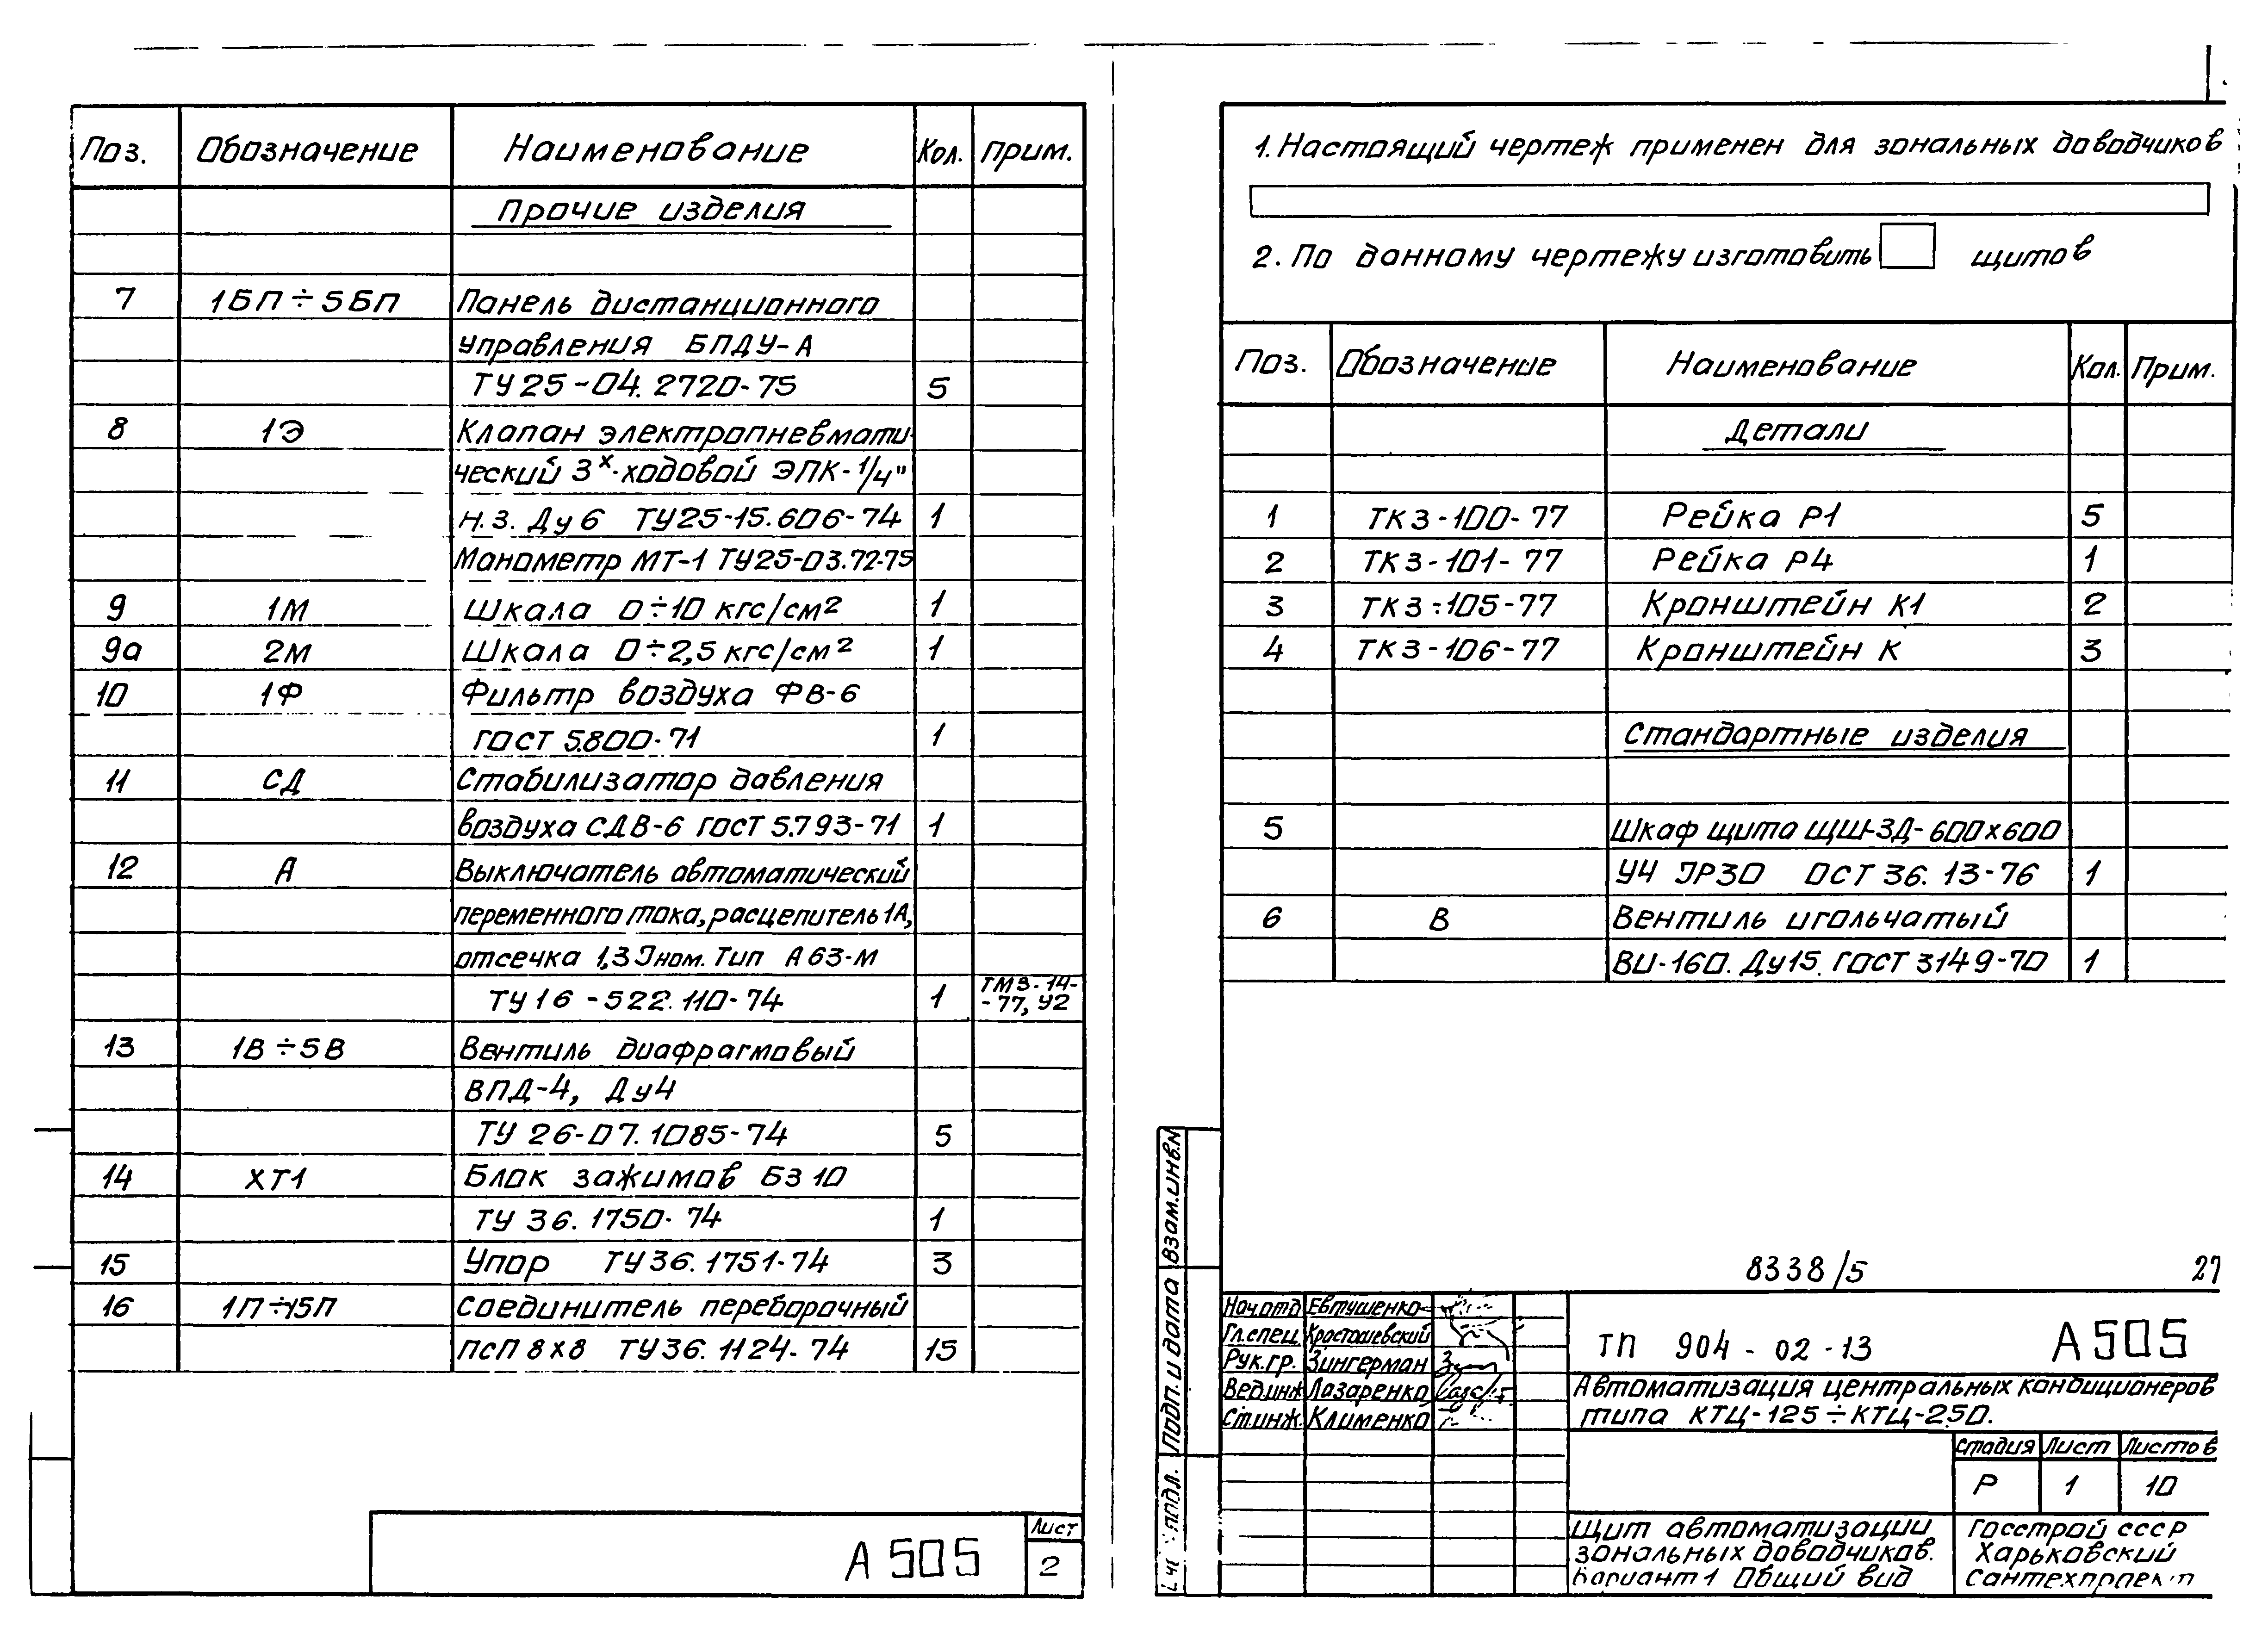 Поз. Обозначение Наименование Кол. прим.
Прочие изделия
7 1БП÷5БП Панель дистанционного
управления БПДУ-А
ТУ25-04.2720-75 5
8 1Э Клапан электропневмати-
ческий 3х-ходовой ЭПК-1/4"
н.з. Ду6 ТУ25-15.606-74 1
Манометр МТ-1 ТУ25-03.72-75
9 1М Шкала 0÷10 кгс/см² 1
9а 2М Шкала 0÷2,5 кгс/см² 1
10 1Ф Фильтр воздуха ФВ-6
ГОСТ 5.800-71 1
11 СД Стабилизатор давления
воздуха СДВ-6 ГОСТ 5.793-71 1
12 А Выключатель автоматический
переменного тока, расцепитель 1А,
отсечка 1,3 Iном. Тип А63-М
ТУ16-522.110-74 1 ТМ3-14-
-77, У2
13 1В÷5В Вентиль диафрагмовый
ВПД-4, Ду4
ТУ 26-07.1085-74 5
14 ХТ1 Блок зажимов БЗ10
ТУ 36.1750-74 1
15 Упор ТУ36.1751-74 3
16 1П÷15П Соединитель переборочный
ПСП 8х8 ТУ36.1124-74 15
А505
Лист
2
1. Настоящий чертеж применен для зональных доводчиков
2. По данному чертежу изготовить щитов
Поз. Обозначение Наименование Кол. Прим.
Детали
1 ТК3-100-77 Рейка Р1 5
2 ТК3-101-77 Рейка Р4 1
3 ТК3-105-77 Кронштейн К1 2
4 ТК3-106-77 Кронштейн К 3
Стандартные изделия
5 Шкаф щита ЩШ-ЗД-600х600
У4 IР30 ОСТ 36.13-76 1
6 В Вентиль игольчатый
ВИ-160. Ду15. ГОСТ 3149-70 1
Взам.инв.№
Подп. и дата
подл.
8338/5 27
Нач.отд Евтушенко
Гл.спец. Красташевский
Рук.гр. Зингерман
Вед.инж Лазаренко
Ст.инж. Клименко
ТП 904-02-13 А505
Автоматизация центральных кондиционеров
типа КТЦ-125÷КТЦ-250.
Стадия Лист Листов
Р 1 10
Щит автоматизации
зональных доводчиков.
Вариант 1 Общий вид
Госстрой СССР
Харьковский
Сантехпроект